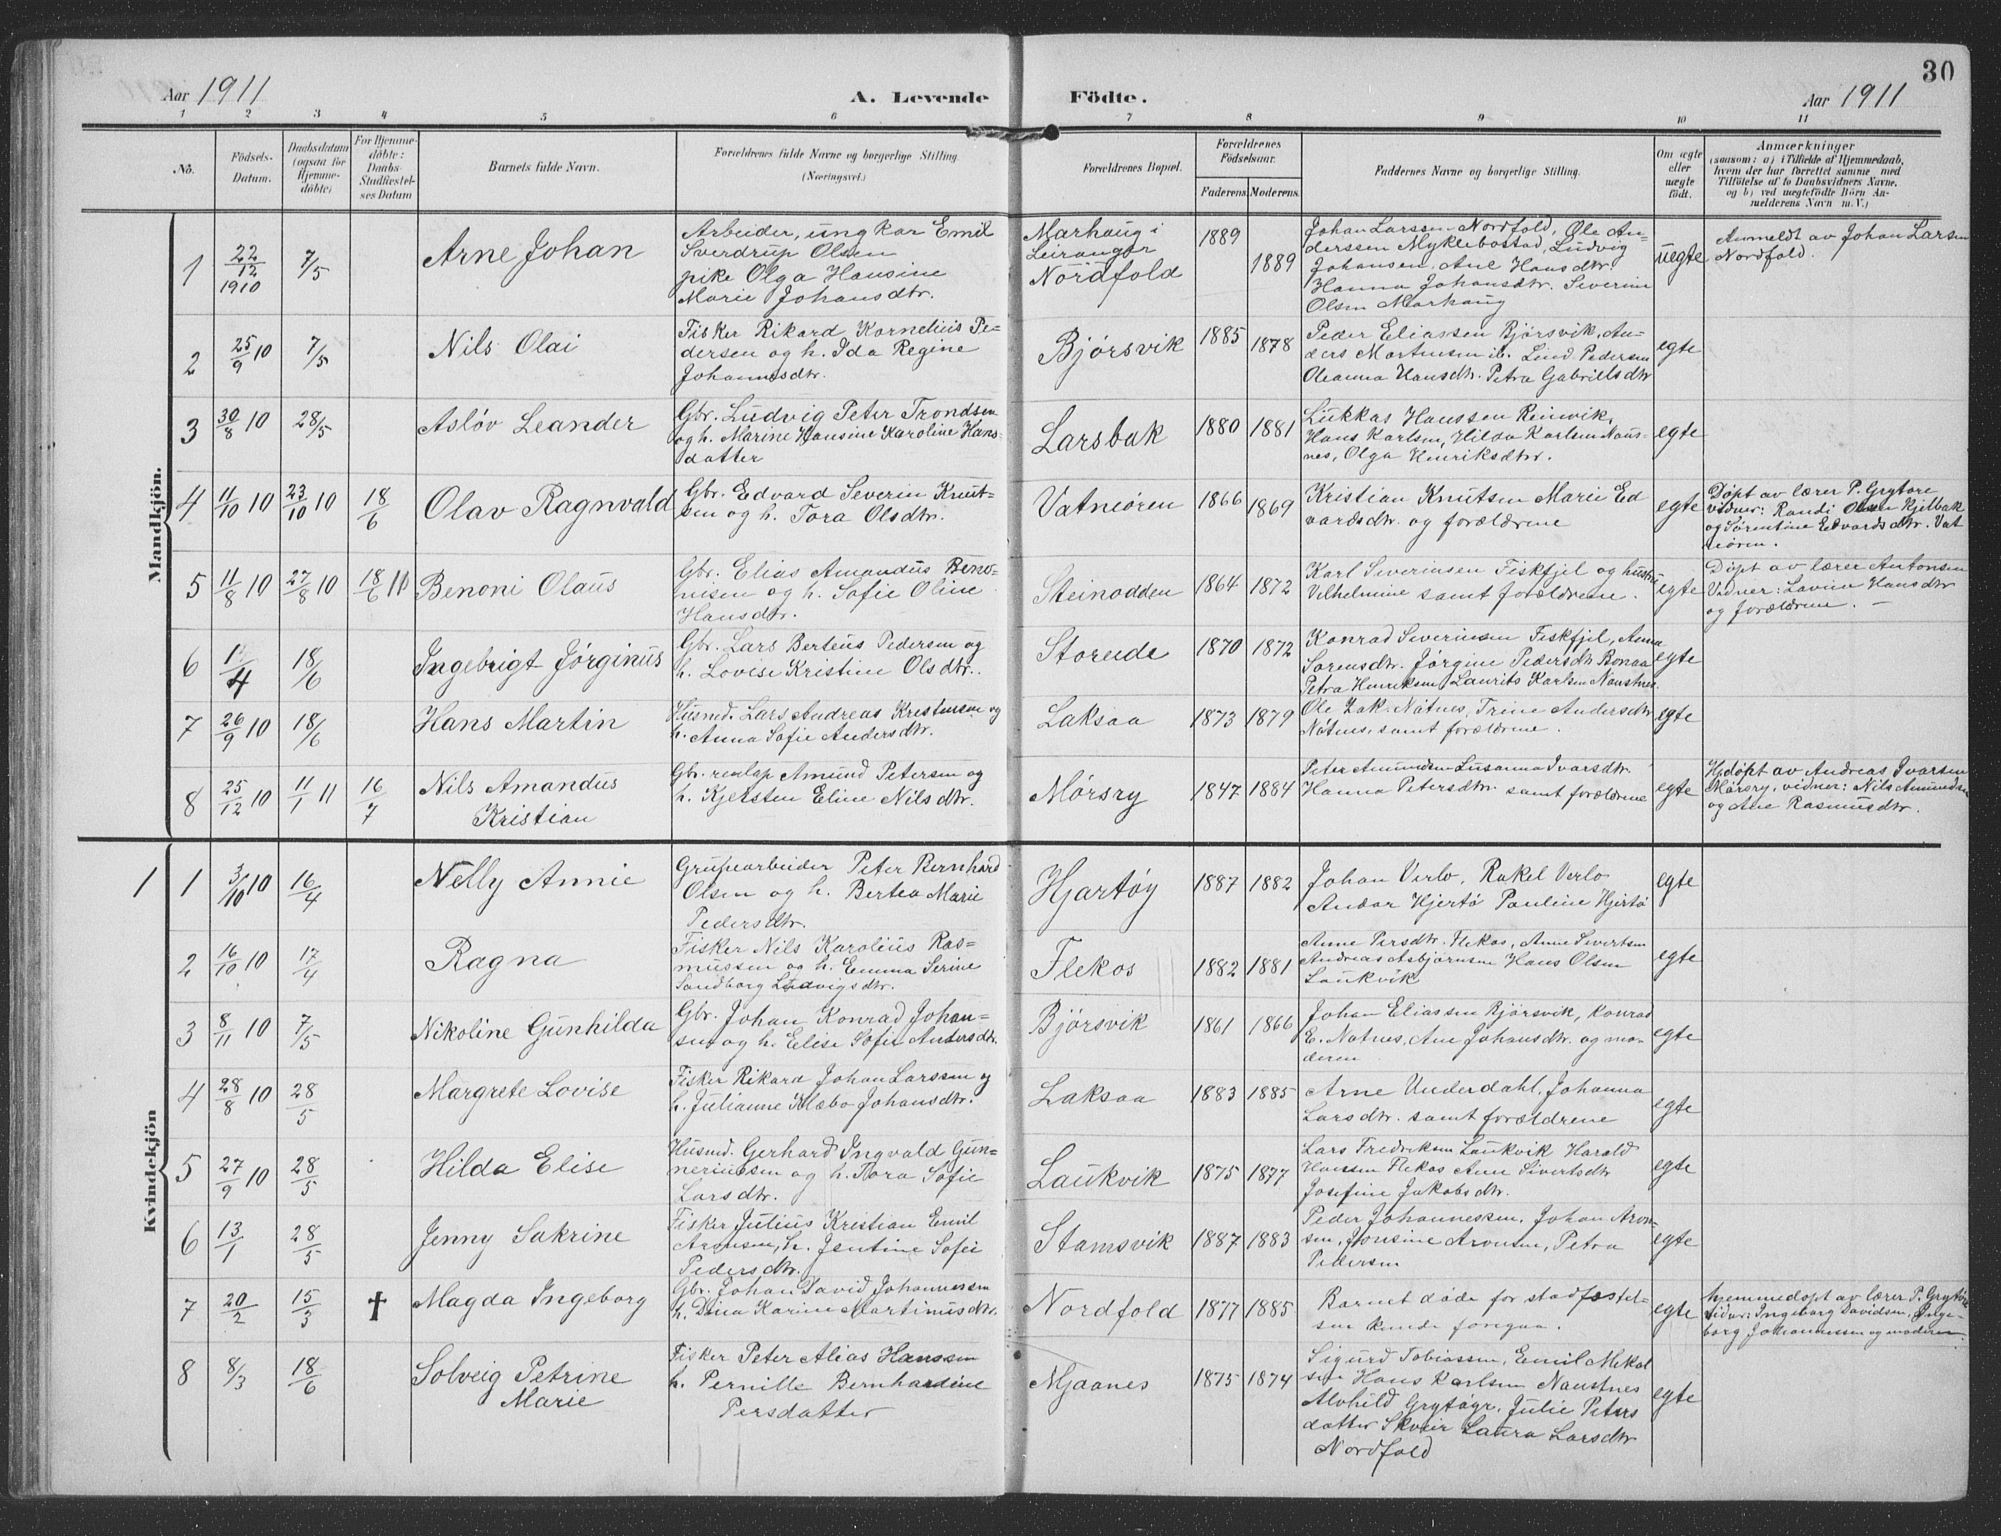 30
Aar 1911
A. Levende Födte.
Aar 1911
1 2 3 4 5 6 7 8 9 10 11
No.
Födsels-
Datum.
Daabsdatum
(ogsaa for
Hjemme-
döbte)
For Hjemme-
döbte:
Daabs-
Stadfæstel-
ses Datum
Barnets fulde Navn.
Forældrenes fulde Navne og borgerlige Stilling
(Næringsvei.)
Forældrenes Bopæl.
Forældrenes
Födselsaar.
Faderens. Moderens.
Faddernes Navne og borgerlige Stilling.
Om ægte
eller
uægte
født.
Anmærkninger
(saasom: a) i Tilfælde af Hjemmedaab,
hvem der har forrettet samme med
Tilföielse af to Daabsvidners Navne,
og b) ved uægtefödte Börn An-
melderens Navn m.V.)
Mandkjön.
1
22/12 1910
7/5
Arne Johan
Arbeider, ungkar Emil
Sverdrup Olsen
pike Olga Hansine
Marie Johansdtr.
Marhaug i
Leiranger
Nordfold
1889
1889
Johan Larssen Nordfold, Ole An-
derssen Myklebostad, Ludvig
Johansen, Ane Hansdtr.
Hanna Johansdtr. Severine
Olsen Marhaug
uegte
Anmeldt av Johan Larsen
Nordfold.
2
25/9 10
7/5
Nils Olai
Fisker Rikard Kornelius Pe-
dersen og h. Ida Regine
Johannesdtr.
Bjørsvik
1885
1878
Peder Eliassen Bjørsvik, An-
ders Martinsen ib. Lind Pedersen
Oleanna Hansdtr. Petra Gabrielsdtr
egte
3
30/8 10
28/5
Asløv Leander
Gbr. Ludvig Peter Trondsen
og h. Marine Hansine Karoline Hans-
datter
Larsbak
1880
1881
Lukkas Hanssen Reinvik,
Hans Karlsen, Hilda Karlsen Naus-
nes, Olga Henriksdtr.
egte
4
11/10 10
23/10 10
18/6
Olav Ragnvald
Gbr. Edvard Severin Knut-
sen og h. Tora Olsdtr.
Vatneøren
1866
1869
Kristian Knutsen Marie Ed
vardsdtr. og forældrene
egte
Døpt av lærer P. Grytøre
vidner: Randi Olsen Kjelbak
og Sørentine Edvardsdtr. Vat
neøren.
5
11/8 10
27/8 10
18/6 11
Benoni Olaus
Gbr. Elias Amandus Beno-
nisen og h. Sofie Oline
Hansdtr.
Steinodden
1864
1872
Karl Severinsen Fiskfjel og hustru
Vilhelmine samt forældrene.
egte
Døpt av lærer Antonsen
Vidner: Lovine Hansdtr
og forældrene. —
6
18/6
Ingebrigt Jørginus
Gbr. Lars Berteus Pedersen og
h. Lovise Kristine Olsdtr.
Storeide
1870
1872
Konrad Severinsen Fiskfjel, Anna
Sorensdtr. Jørgine Pedersdtr Bonaa
Petra Henriksen, Laurits Karlsen Naustnes.
egte
7
26/9 10
18/6
Hans Martin
Husmd. Lars Andreas Kristensen og
h. Anna Sofie Andersdtr.
Laksaa
1873
1879
Ole Zak. Nótnes, Trine Andersdtr
Nótnes, samt forældrene.
egte
8
25/12 10
11/1 11
16/7
Nils Amandus
Kristian
Gbr. renlap Amund Petersen og
h. Kjersten Eline Nilsdtr.
Mørsry
1847
1884
Peter Amundsen Susanna Ivarsdtr.
Hanna Petersdtr. samt forældrene
egte
Hjdøpt av Andreas Ivarsen
Mørsry, vidner: Nils Amundsen
og Ane Rasmusdtr.
Kvindekjön
1
1
3/10 10
16/4
Nelly Annie
Grubearbeider Peter Bernhard
Olsen og h. Bertea Marie
Pedersdtr.
Hjartøy
1887
1882
Johan Verlo, Rakel Verlo
Andor Hjertø Pauline Hjertø
egte
2
16/10 10
17/4
Ragna
Fisker Nils Karolius Ras-
mussen og h. Emma Serine
Sandborg Ludvigsdtr.
Flekos
1882
1881
Anne Persdtr. Flekos, Anne Sivertsen
Andreas Asbjørnsen Hans Olsen
Laukvik
egte
3
8/11 10
7/5
Nikoline Gunhilda
Gbr. Johan Konrad Johan-
sen og h. Elise Sofie Andersdtr.
Bjørsvik
1861
1866
Johan Eliassen Bjørsvik, Konrad
E. Notnes, Ane Johansdtr. og mo-
deren
egte
4
28/8 10
28/5
Margrete Lovise
Fisker Rikard Johan Larssen og
h. Julianne Mæbo Johansdtr.
Laksaa
1883
1885
Arne Underdahl, Johanna
Larsdtr. samt forældrene
egte
5
27/9 10
28/5
Hilda Elise
Husmd. Gerhard Ingvald Gun-
neriussen og h. Tora Sofie
Larsdtr.
Laukvik
1875
1877
Lars Fredriksen Laukvik Harald
Hanssen Flekos Ane Sivertsdtr
Josefine Jakobsdtr.
egte
6
13/1
28/5
Jenny Sakrine
Fisker Julius Kristian Emil
Aronsen, h. Jentine Sofie
Pedersdtr.
Stamsvik
1887
1883
Peder Johannessen, Johan Aron-
sen, Aronsen, Petra
Pedersen
egte
7
20/2
15/3
✝
Magda Ingeborg
Gbr. Johan David Johannessen
h. Dina Karine Martinusdtr.
Nordfold
1877
1885
Barnet døde før stadfæstel-
sen kunde foregaa.
egte
Hjemmedøpt av lærer P. Grytøre
vidner: Ingeborg Davidsen, Inge-
borg Johannessen og moderen.
8
8/3
18/6
Solveig Petrine
Marie
Fisker Peter Alias Hanssen
h. Pernille Bernhardine
Persdatter
Mjaanes
1875
1874
Sigurd Tobiassen, Emil Mikal
sen Hans Karlsen Naustnes
Alvhild Grytøyr, Julie Peters
datter Skveir Laura Larsdtr
Nordfold
egte